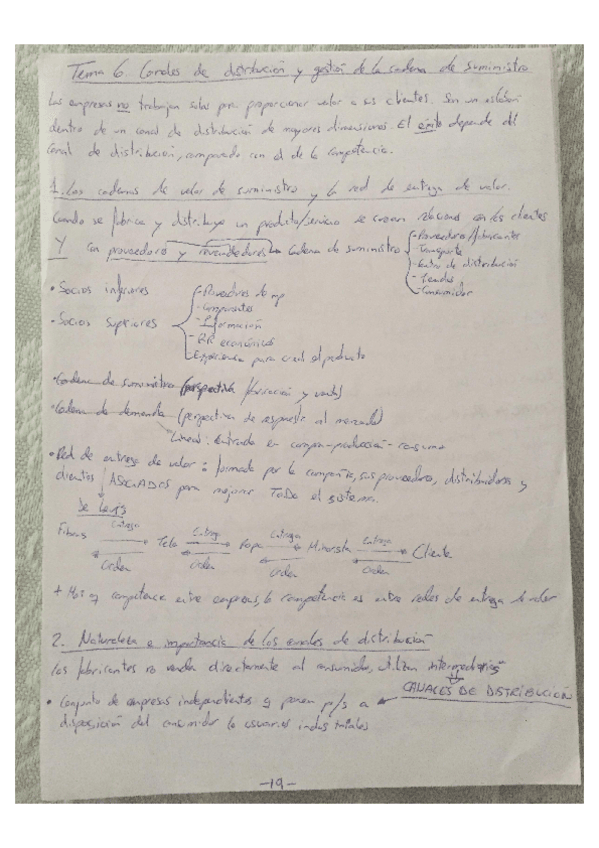 Tema 6. Canales de distribución y gestión de la cadena de suministro
Las empresas no trabajan solas para proporcionar valor a sus clientes. Son un eslabón
dentro de un canal de distribución de mayores dimensiones. El éxito depende del
Canal de distribución, comparado con el de la competencia.
1. Las cadenas de valor de suministro y la red de entrega de valor.
Cuando se fabrica y distribuye un producto/servicio se crean relaciones con los clientes
Y con proveedores y revendedores Cadena de suministro
- Proveedores/fabricantes
- Transporte
- Centros de distribución
- Tiendas
- Consumidor
• Socios inferiores
• Socios superiores
- Proveedores de mp
- Componentes
- Información
- RR económicos
- Experiencia para crear el producto
• Cadena de suministro (perspectiva fabricación y venta)
• Cadena de demanda (perspectiva de respuesta al mercado)
Lineal: entrada en compra-producción-consumo
• Red de entrega de valor: formada por la compañía, sus proveedores, distribuidores y
clientes ASOCIADOS para mejorar TODO el sistema.
De Levis
Fibras Entrega Orden Tela Entrega Orden Ropa Entrega Orden Minorista Entrega Orden Cliente
+ Más q competencia entre empresas, la competencia es entre redes de entrega de valor
2. Naturaleza e importancia de los canales de distribución
Los fabricantes no venden directamente al consumidor, utilizan intermediarios
CANALES DE DISTRIBUCIÓN
• Conjunto de empresas independientes q ponen p/s a
disposición del consumidor o usuarios industriales
-19-